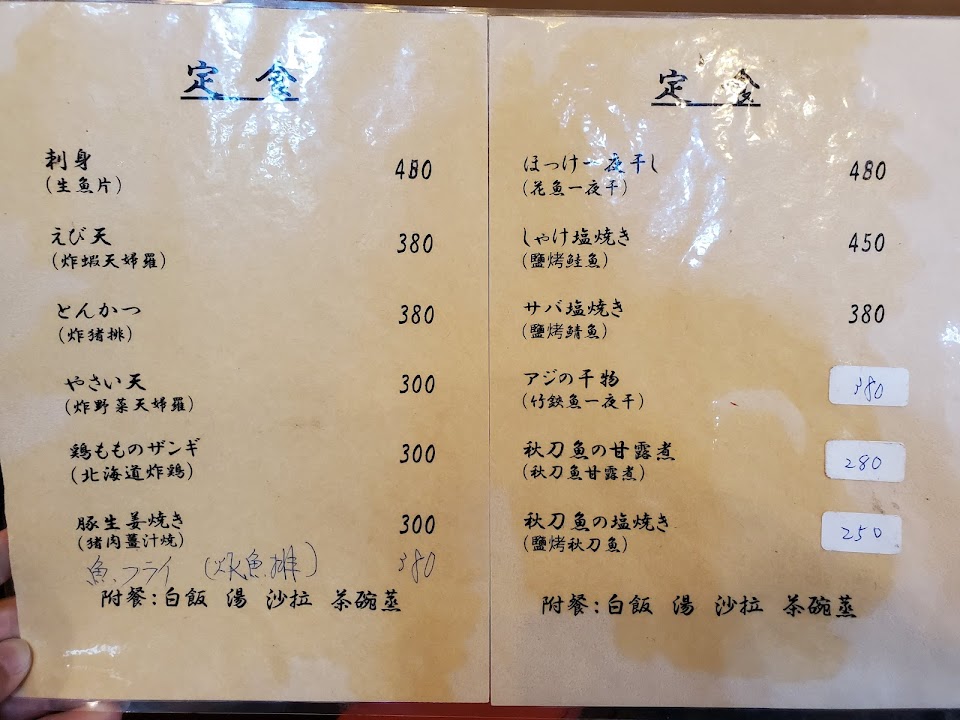 定食
刺身 480
(生魚片)
えび天 380
(炸蝦天婦羅)
とんかつ 380
(炸猪排)
やさい天 300
(炸野菜天婦羅)
鶏もものザンギ 300
(北海道炸鶏)
豚生姜焼き 300
(猪肉薑汁焼)
魚フライ (炸魚排) 380
附餐:白飯 湯 沙拉 茶碗蒸
定食
ほっけ一夜干し 480
(花魚一夜干)
しゃけ塩焼き 450
(鹽烤鮭魚)
サバ塩焼き 380
(鹽烤鯖魚)
アジの干物 380
(竹鋏魚一夜干)
秋刀魚の甘露煮 280
(秋刀魚甘露煮)
秋刀魚の塩焼き 250
(鹽烤秋刀魚)
附餐:白飯 湯 沙拉 茶碗蒸